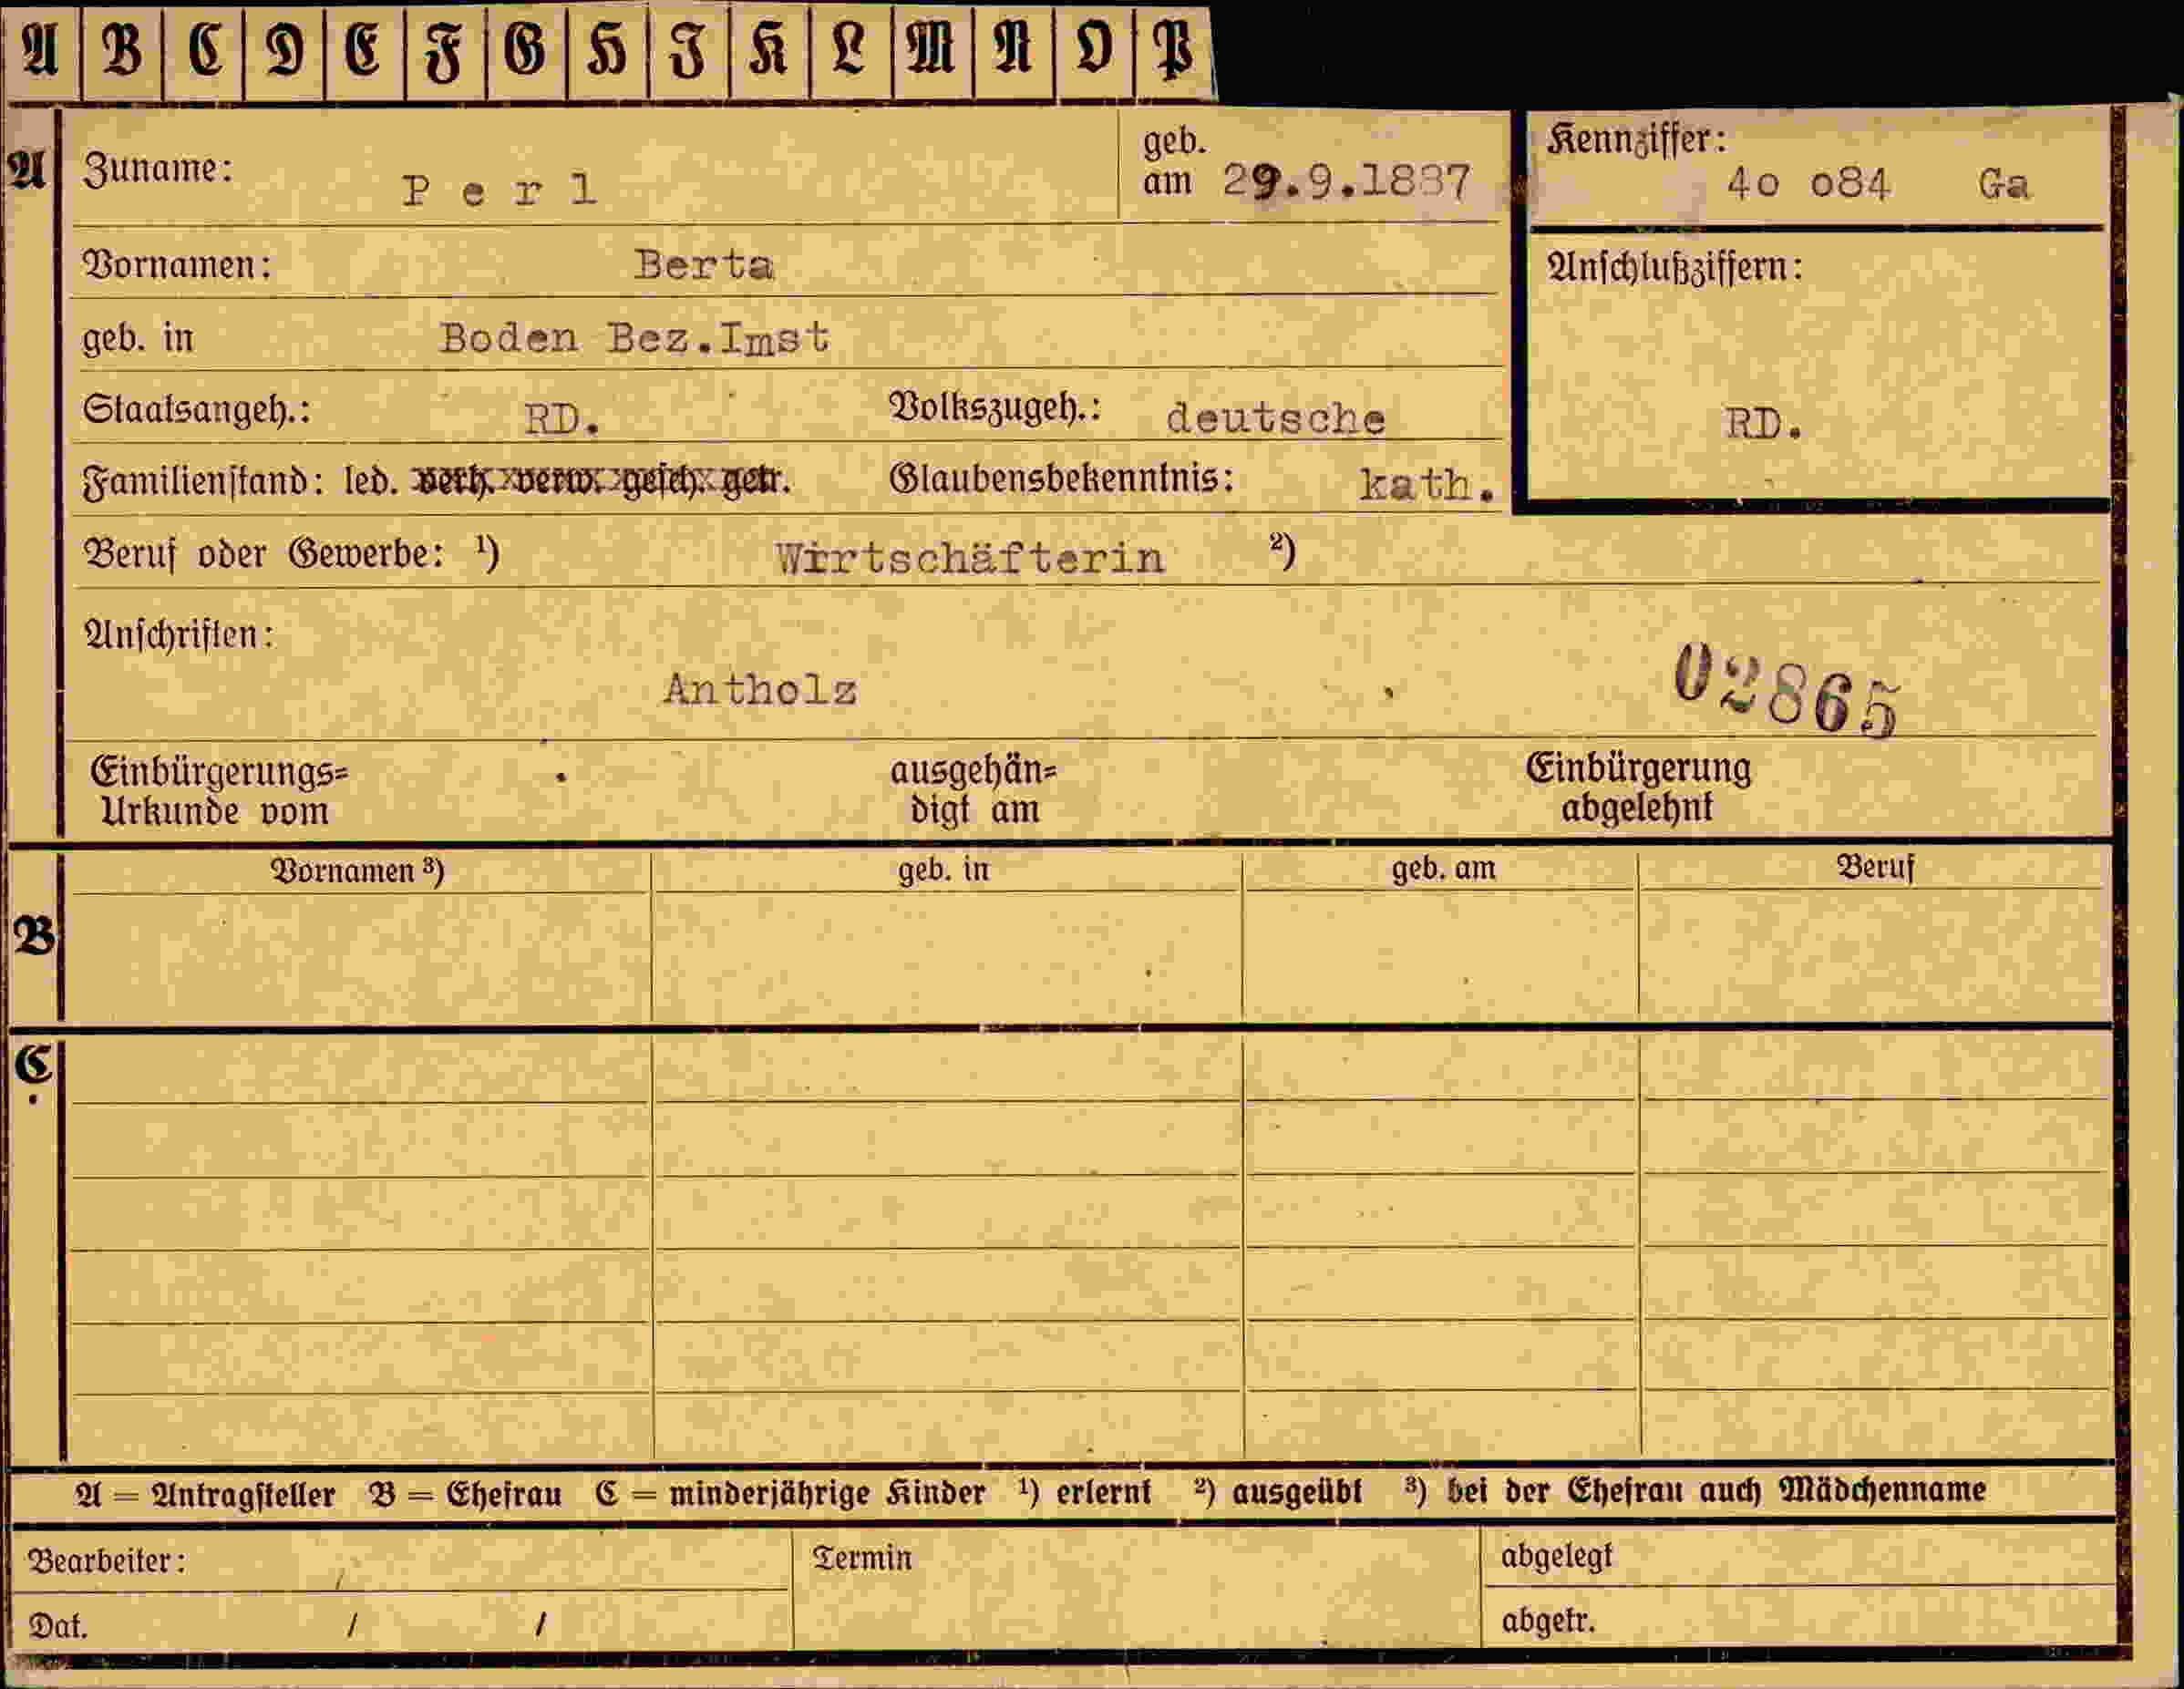 A B C D E F G H I K L M N O P
A
Zuname: Perl geb. am 29.9.1887
Kennziffer: 4o o84 Ga
Vornamen: Berta
Anschlußziffern:
geb. in Boden Bez.Imst
Staatsangeh.: RD. Volkszugeh.: deutsche
RD.
Familienstand: led. verh. verw. gesch. getr. Glaubensbekenntnis: kath.
Beruf oder Gewerbe: ¹) Wirtschäfterin ²)
Anschriften:
Antholz
02865
Einbürgerungs=
Urkunde vom
ausgehän=
digt am
Einbürgerung
abgelehnt
B
Vornamen ³) geb. in geb. am Beruf
C
A = Antragsteller B = Ehefrau C = minderjährige Kinder ¹) erlernt ²) ausgeübt ³) bei der Ehefrau auch Mädchenname
Bearbeiter: Termin abgelegt
Dat. / / abgetr.